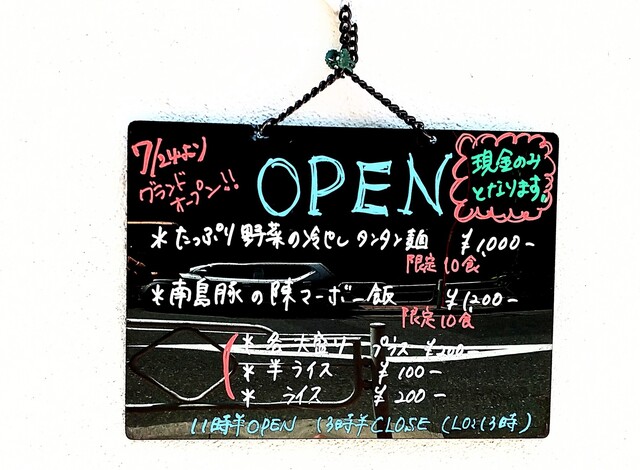 7/24より
グランド
オープン!!
OPEN
現金のみ
となります。
*たっぷり野菜の冷やしタンタン麺 ¥1,000-
限定10食
*南島豚の陳マーボー飯 ¥1,200-
限定10食
*各 大盛り プラス ¥200-
*半ライス ¥100-
*ライス ¥200-
11時半OPEN 13時半CLOSE (LO:13時)